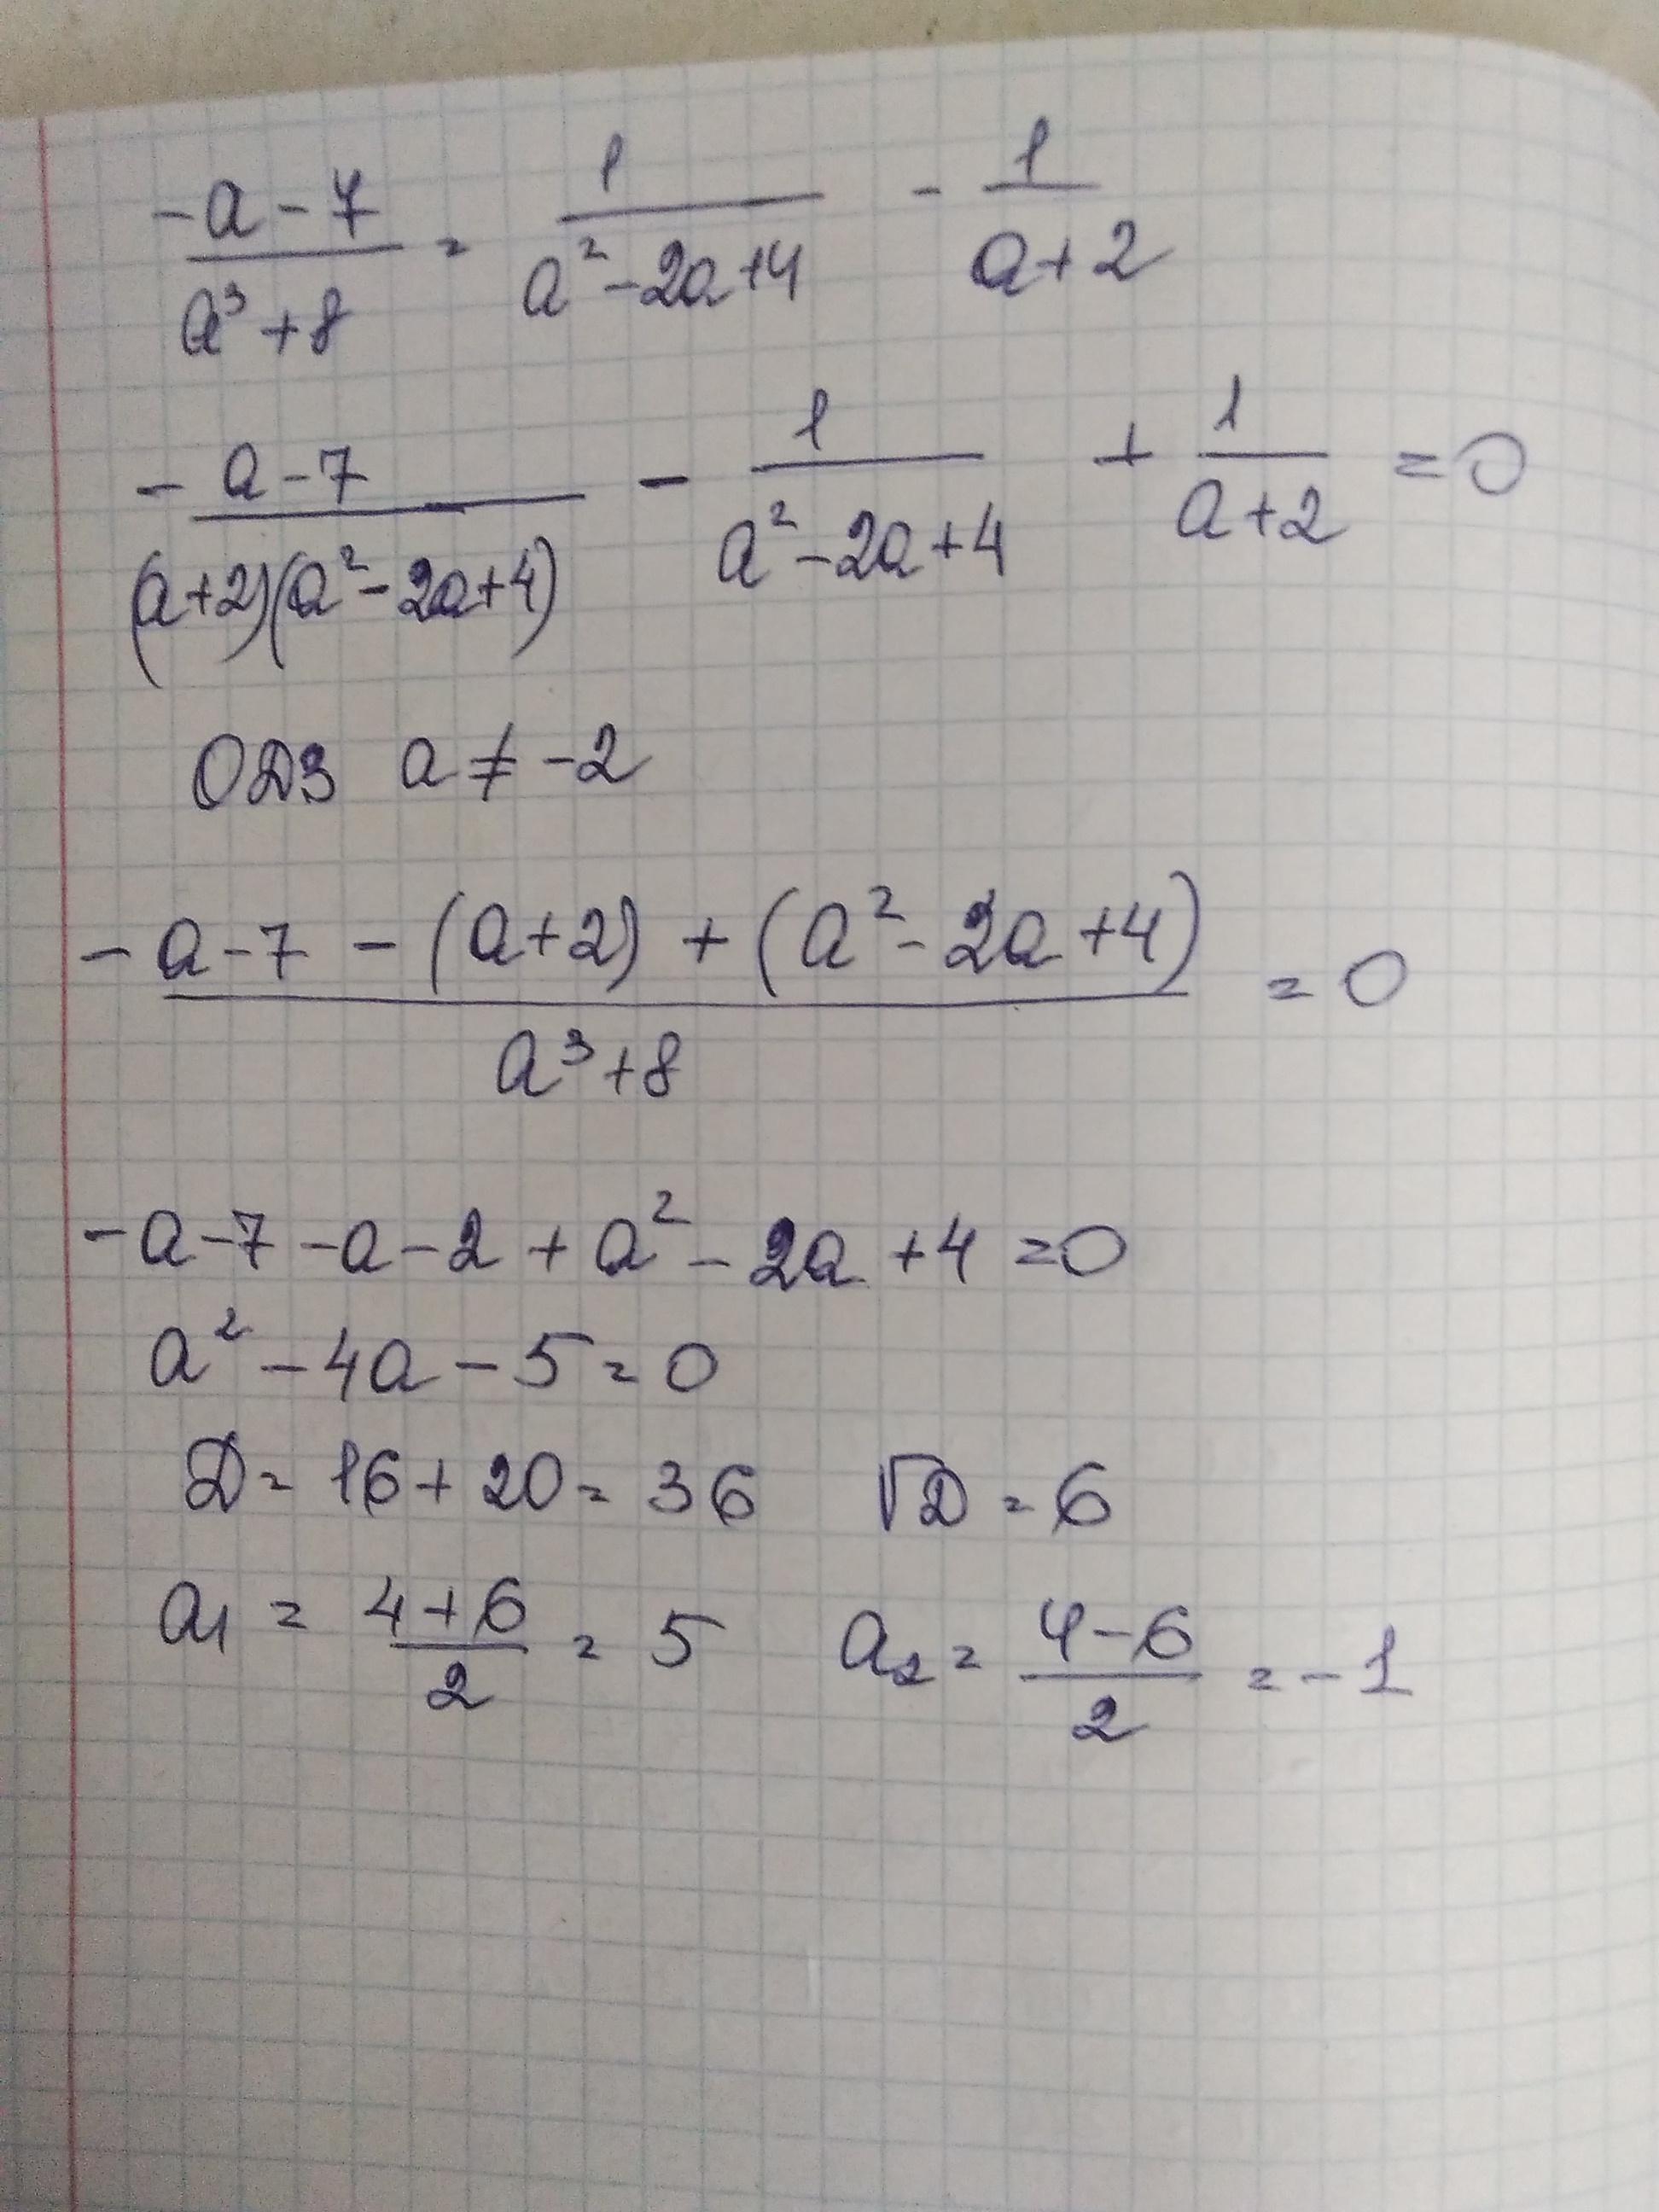 (-a-7)/(a³+8) = 1/(a²-2a+4) - 1/(a+2)
(-a-7)/((a+2)(a²-2a+4)) - 1/(a²-2a+4) + 1/(a+2) = 0
ОДЗ a ≠ -2
(-a-7-(a+2)+(a²-2a+4))/(a³+8) = 0
-a-7-a-2+a²-2a+4=0
a²-4a-5=0
D=16+20=36 √D=6
a₁ = (4+6)/2 = 5 a₂ = (4-6)/2 = -1